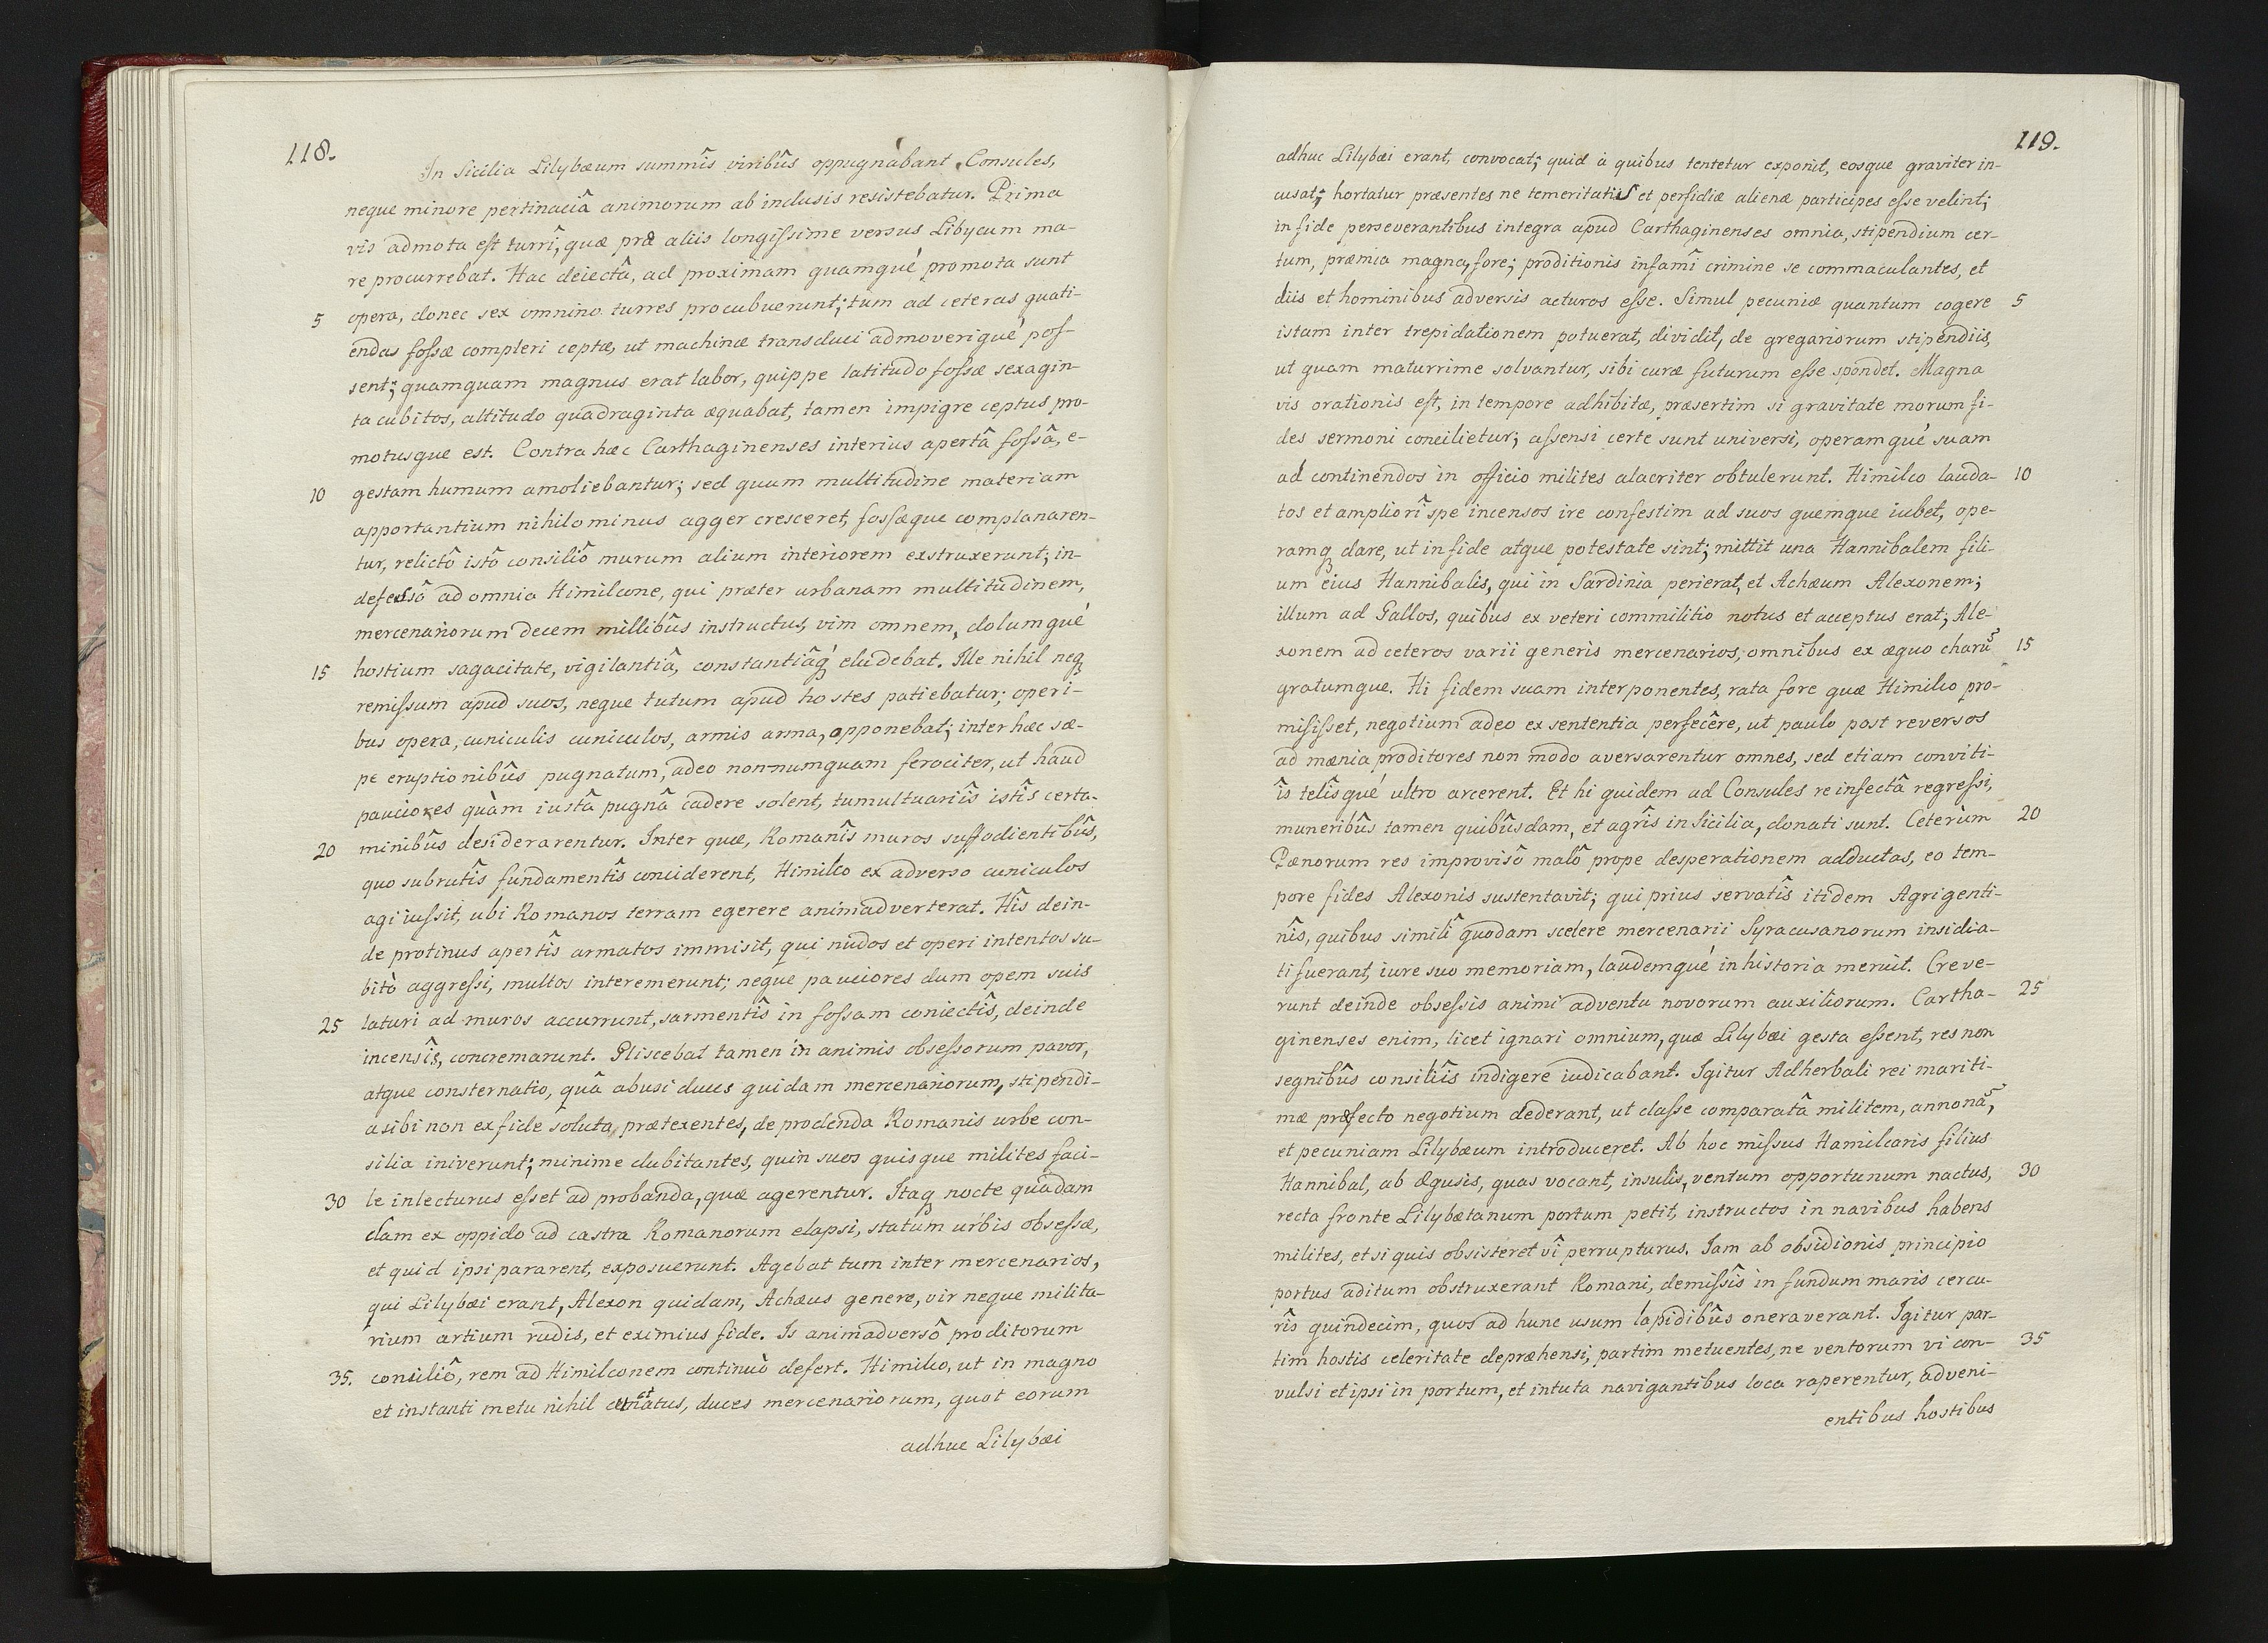 118.
In Sicilia Lilybæum summîs viribûs oppugnabant Consules,
neque minore pertinaciâ animorum ab inclusis resistebatur. Prima
vis admota eſt turrî, quæ præ aliis longiſsime versus Libycum ma-
re procurrebat. Hac deiectâ, ad proximam quamqué promota sunt
5 opera, donec sex omnino turres procubuerunt; tum ad ceteras quati-
endas foſsæ compleri ceptæ, ut machinæ transduci admoverique poſ-
sent; quamquam magnus erat labor, quippe latitudo foſsæ sexagin-
ta cubitos, altitudo quadraginta æquabat, tamen impigre ceptus pro-
motusque est. Contra hæc Carthaginenses interius apertâ foſsâ, e-
10 gestam humum amoliebantur; sed quum multitudine materiam
apportantium nihilominus agger cresceret, foſsæque complanaren-
tur, relictô istô consiliô murum alium interiorem exstruxerunt; in-
defeſsô ad omnia Himilcone, qui præter urbanam multitudinem,
mercenariorum decem millibûs instructus, vim omnem, dolumqué
15 hostium sagacitate, vigilantiâ, constantiâq́ eludebat. Ille nihil neq
remiſsum apud suos, neque tutum apud hostes patiebatur; operi-
bus opera, cuniculis cuniculos, armis arma, opponebat; inter hæc sæ-
pe eruptionibûs pugnatum, adeo nonnumquam ferociter, ut haud
pauciores quàm iustâ pugnâ cadere solent, tumultuariîs istîs certa-
20 minibûs desiderarentur. Inter quæ, Romanîs muros suffodientibûs,
quo subrutîs fundamentîs conciderent, Himilco ex adverso cuniculos
agi iuſsit, ubi Romanos terram egerere animadverterat. Hîs dein-
de protinus apertîs armatos immisit, qui nudos et operi intentos su-
bitò aggreſsi, multos interemerunt; neque pauciores dum opem suis
25 laturi ad muros accurrunt, sarmentîs in foſsam coniectîs, deinde
incensîs, concremarunt. Gliscebat tamen in animis obseſsorum pavor,
atque consternatio, quâ abusi duces quidam mercenariorum, stipendi-
a sibi non ex fide soluta, prætexentes, de prodenda Romanis urbe con-
silia iniverunt; minime dubitantes, quin suos quisque milites faci-
30 le inlecturus eſset ad probanda, quæ agerentur. Itaq nocte quâdam
clam ex oppido ad castra Romanorum elapsi, statum urbis obseſsæ,
et quid ipsi pararent, exposuerunt. Agebat tum inter mercenarios,
qui Lilybæi erant, Alexon quidam, Achæus genere, vir neque milita-
rium artium rudis, et eximius fide. Is animadversô proditorum
35. consiliô, rem ad Himilconem continuò defert. Himilco, ut in magno
et instanti metu nihil cunctatus, duces mercenariorum, quot eorum
adhuc Lilybæi
119.
adhuc Lilybæi erant, convocat; quid à quibus tentetur exponit, eosque graviter in-
cusat; hortatur præsentes ne temeritatis et perfidiæ alienæ participes eſse velint;
in fide perseverantibus integra apud Carthaginenses omnia, stipendium cer-
tum, præmia magna, fore; proditionis infamî crimine se commaculantes, et
diis et hominibus adversis acturos eſse. Simul pecuniæ quantum cogere 5
istam inter trepidationem potuerat, dividit, de gregariorum stipendiis,
ut quam maturrime solvantur, sibi curæ futurum eſse spondet. Magna
vis orationis eſt, in tempore adhibitæ, præsertim si gravitate morum fi-
des sermoni concilietur; aſsensi certe sunt universi, operamqué suam
ad continendos in officio milites alacriter obtulerunt. Himilco lauda- 10
tos et ampliorî spe incensos ire confestim ad suos quemque iubet, ope-
ramq dare, ut in fide atque potestate sint; mittit una Hannibalem fili-
um eius Hannibalis, qui in Sardinia perierat, et Achæum Alexonem;
illum ad Gallos, quibus ex veteri commilitio notus et acceptus erat; Ale-
xonem ad ceteros varii generis mercenarios; omnibus ex æquo charū 15
gratumque. Hi fidem suam interponentes, rata fore quæ Himilco pro-
misiſset, negotium adeo ex sententia perfecêre, ut paulo post reversos
ad mænia proditores non modo aversarentur omnes, sed etiam conviti-
îs telîsqué ultro arcerent. Et hi quidem ad Consules re infectâ regreſsi,
muneribûs tamen quibûsdam, et agrîs in Sicilia, donati sunt. Ceterùm 20
Pænorum res improvisô malô prope desperationem adductas, eo tem-
pore fides Alexonis sustentavit; qui prius servatîs itidem Agrigenti-
nîs, quibus similî quodam scelere mercenarii Syracusanorum insidia-
ti fuerant, iure suo memoriam, laudemqué in historia meruit. Creve-
runt deinde obseſsis animi adventu novorum auxiliorum. Cartha- 25
ginenses enim, licet ignari omnium, quæ Lilybæi gesta eſsent, res non
segnibûs consiliîs indigere iudicabant. Igitur Adherbali rei mariti-
mæ præfecto negotium dederant, ut claſse comparatâ militem, annonā,
et pecuniam Lilybæum introduceret. Ab hoc miſsus Hamilcaris filius
Hannibal, ab Ægusis, quas vocant, insulis, ventum opportunum nactus, 30
recta fronte Lilybætanum portum petit, instructos in navibus habens
milites, et si quis obsisteret vî perrupturus. Iam ab obsidionis principio
portus aditum obstruxerant Romani, demiſsîs in fundum maris cercu-
rîs quindecim, quos ad hunc usum lapidibûs oneraverant. Igitur par-
tim hostis celeritate depræhensi, partim metuentes, ne ventorum vi con- 35
vulsi et ipsi in portum, et intuta navigantibus loca raperentur, adveni-
entibus hostibus